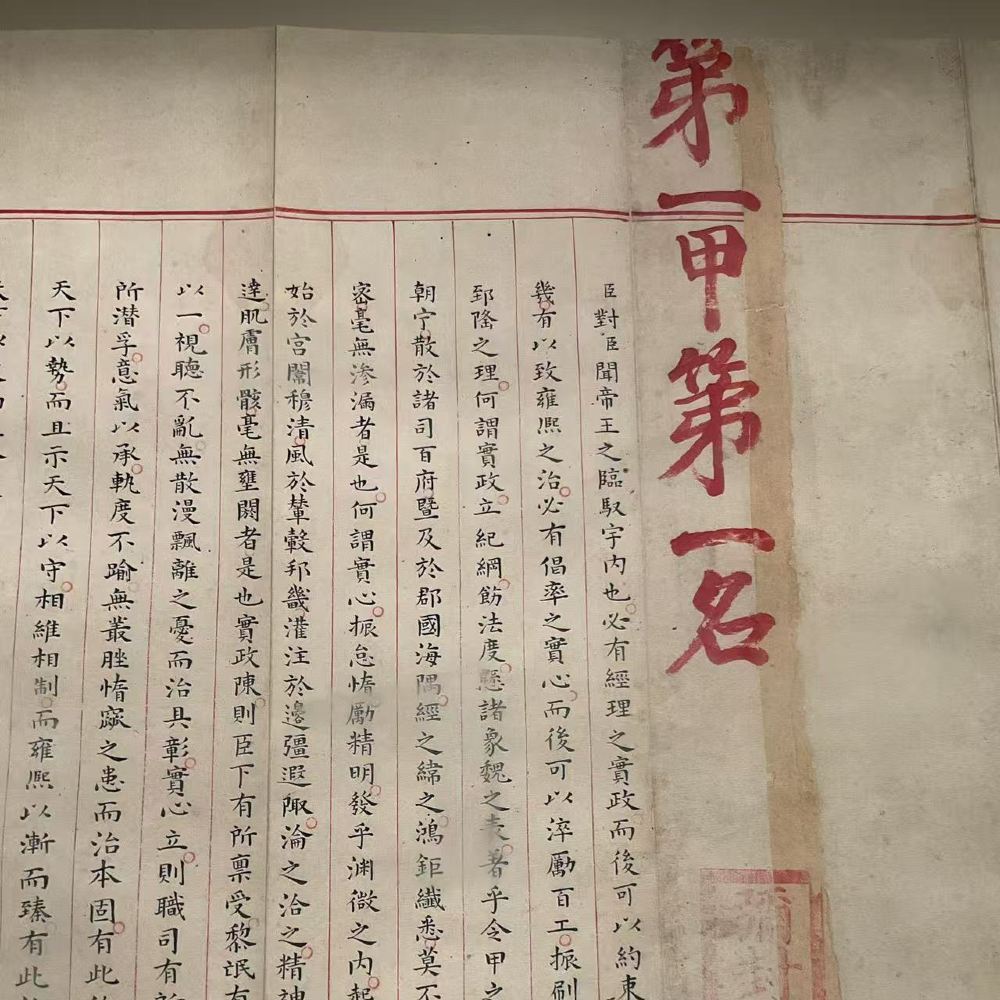 第一甲第一名
臣對臣聞帝王之臨馭宇内也必有經理之實政而後可以約束
幾有以致雍熙之治必有倡率之實心而後可以淬勵百工振刷
郅隆之理何謂實政立紀綱飭法度懸諸象魏之表著乎令甲之
朝宁散於諸司百府暨及於郡國海隅經之緯之鴻鉅纖悉莫不
宻毫無滲漏者是也何謂實心振怠惰勵精明發乎渊微之内起
始於宮闈穆清風於輦轂邦畿灌注於邊彊遐陬淪之洽之精神
達肌膚形骸毫無壅閼者是也實政陳則臣下有所禀受黎氓有
以一視聽不亂無散漫飄離之憂而治具彰實心立則職司有所
所潜孚意氣以承軌度不踰無叢脞惰窳之患而治本固有此
天下以勢而且示天下以守相維相制而雍熙以漸而臻有此